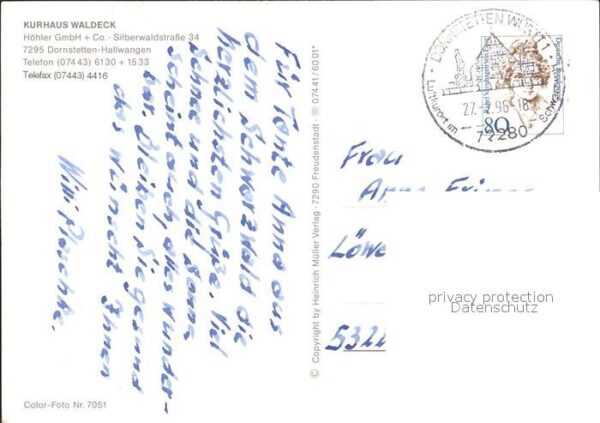 KURHAUS WALDECK
Höhler GmbH + Co. - Silberwaldstraße 34
7295 Dornstetten-Hallwangen
Telefon (07443) 6130 + 1533
Telefax (07443) 4416
Für Tante Anna aus
dem Schwarzwald die
herzlichsten Grüße. Viel
Schnee und die Sonne
scheint auch, alles wunder-
bar. Bleiben Sie gesund
das wünscht Ihnen
Color-Foto Nr. 7051
© Copyright by Heinrich Müller Verlag · 7290 Freudenstadt · ☏ 07441/6001*
DORNSTETTEN WÜRTT 1
Luftkurort im Schwarzwald
27.-2.96-18
72280
80
Frau
Anna
Löwe
5322
privacy protection
Datenschutz